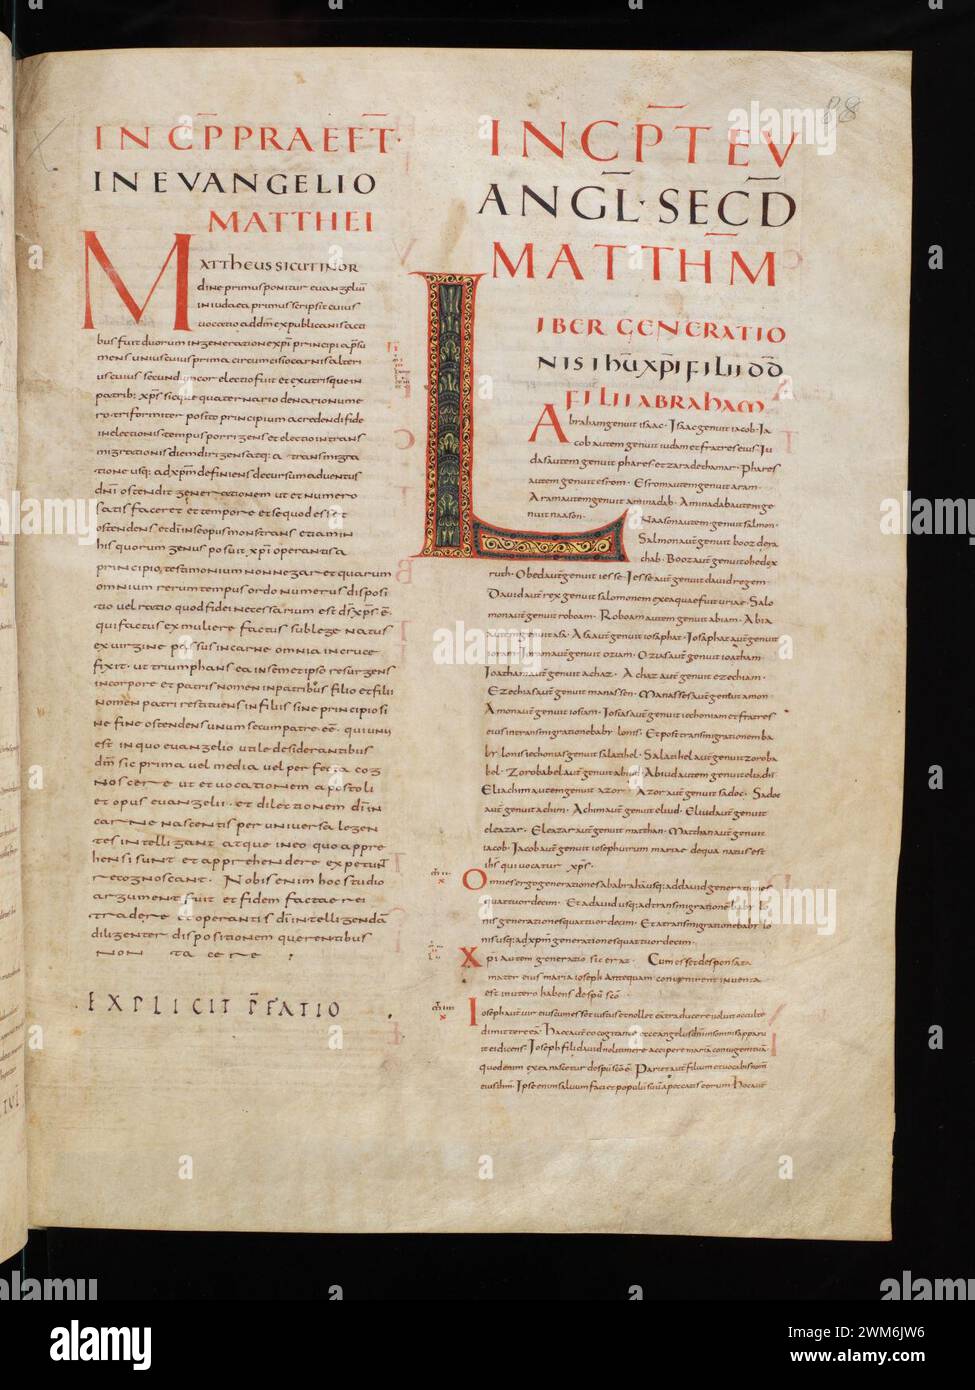 88
INCP PRAEFT·
IN EVANGELIO
MATTHEI
MATTHEUS SICUT IN OR
dine primus ponitur evangeliũ
in iudaea primus scripsit cuius
vocatio ad dm̃ ex publicanis acti
bus fuit duorum in generatione xp̃i principia p̃su
mens unius cuius prima circumcisio carnis alteri
us cuius secundum cor electio fuit et ex utrisque in
patrib: xp̃s sicque quaternario denario nume
ro triformiter posito principium a credendi fide
in electionis tempus porrigens et electio in trans
migrationis diem dirigens atq: a transmigra
tione usq: ad xp̃m definiens decursam adventus
dn̄i ostendit generationem ut et numero
satisfaceret et tempore et se quod esset
ostendens et dī in se opus monstrans etiam in
his quorum genus posuit xp̃i operantis a
principio testimonium non negaret quarum
omnium rerum tempus ordo numerus disposi
tio vel ratio quod fidei necessarium est ds̄ xp̃s ē
qui factus ex muliere factus sub lege natus
ex virgine passus in carne omnia in cruce
fixit· ut triumphans ea in semetipso resurgens
in corpore et patris nomen in patribus filio et filii
nomen patri restituens in filiis sine principio si
ne fine ostendens unum se cum patre eē· qui unũ
est in quo evangelio utile desiderantibus
dm̄ sic prima vel media vel perfecta cog
noscere ut et vocationem apostoli
et opus evangelii· et dilectionem dī in
carne nascentis per universa legen
tes intelligant atque in eo quo appre
hensi sunt et apprehendere expetunt
recognoscant· Nobis enim hoc studio
argumenti fuit et fidem factae rei
tradere et operantis dī intelligendã
diligenter dispositionem querentibus
non tacere
EXPLICIT PFATIO
INCPT EV
ANGL· SECD
MATTHM
LIBER GENERATIO
NIS IHU XPI FILII DD
FILII ABRAHAM
Abraham genuit isaac· Isaac genuit iacob· Ia
cob autem genuit iudam et fratres eius· Iu
das autem genuit phares et zara de thamar· Phares
autem genuit esrom· Esrom autem genuit aram·
Aram autem genuit aminadab· Aminadab autem ge
nuit naason·
Naason autem genuit salmon·
Salmon aut̃ genuit booz de ra
chab· Booz aut̃ genuit obed ex
ruth· Obed aut̃ genuit iesse· Iesse aut̃ genuit david regem
David aut̃ rex genuit salomonem ex ea quae fuit uriae· Salo
mon aut̃ genuit roboam· Roboam autem genuit abiam· Abia
autem genuit asa· Asa aut̃ genuit iosaphat· Iosaphat aut̃ genuit
ioram· Ioram aut̃ genuit oziam· Ozias aut̃ genuit ioatham·
Ioatham aut̃ genuit achaz· Achaz aut̃ genuit ezechiam·
Ezechias aut̃ genuit manassen· Manasses aut̃ genuit amon
Amon aut̃ genuit iosiam· Iosias aut̃ genuit iechoniam et fratres
eius in transmigratione babylonis· Et post transmigrationem ba
bylonis iechonias genuit salatihel· Salatihel aut̃ genuit zoroba
bel· Zorobabel aut̃ genuit abiud· Abiud autem genuit eliachim
Eliachim autem genuit azor· Azor aut̃ genuit sadoc· Sadoc
aut̃ genuit achim· Achim aut̃ genuit eliud· Eliud aut̃ genuit
eleazar· Eleazar aut̃ genuit matthan· Matthan aut̃ genuit
iacob· Iacob aut̃ genuit ioseph virum mariae de qua natus est
ih̄s qui vocatur xp̄s·
Omnes ergo generationes ab abraham usq: ad david generationes
quattuordecim· Et a david usq: ad transmigrationē babylo
nis generationes quattuordecim· Et a transmigratione babylo
nis usq: ad xp̄m generationes quattuordecim·
Xpi autem generatio sic erat· Cum esset desponsata
mater eius maria ioseph Antequam convenirent inventa
est in utero habens de spū sc̄o
Ioseph aut̃ vir eius cum esset iustus et nollet eam traducere voluit occulte
dimittere eã· Haec aut̃ eo cogitante ecce angelus dn̄i in somnis apparu
it ei dicens· Ioseph fili david noli timere accipere mariã coniugem tuã
quod enim ex ea nascetur de spū sc̄o ē· Pariet aut̃ filium et vocabis nom̃
eius ih̄m· Ipse enim salvum faciet populũ suũ a peccatis eorum· Hoc aut̃
alamy
Image ID: 2WM6JW6
www.alamy.com